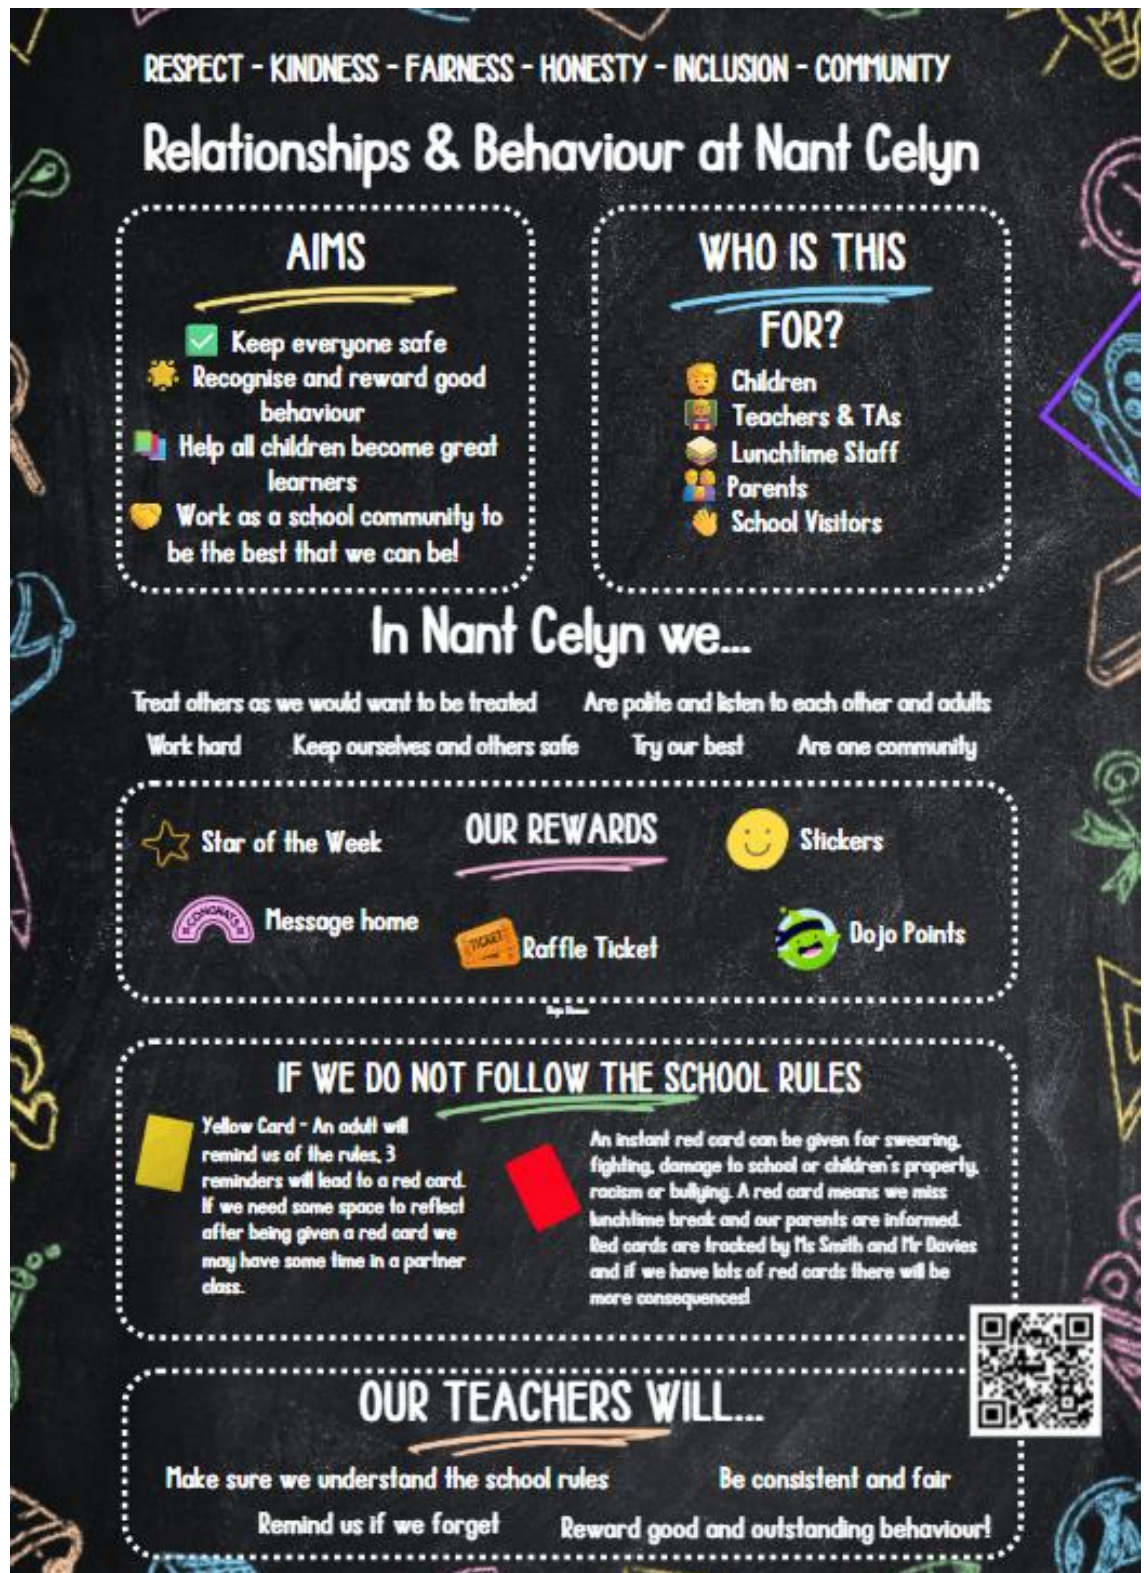 RESPECT - KINDNESS - FAIRNESS - HONESTY - INCLUSION - COMMUNITY
Relationships & Behaviour at Nant Celyn
AIMS
Keep everyone safe
Recognise and reward good
behaviour
Help all children become great
learners
Work as a school community to
be the best that we can be!
WHO IS THIS
FOR?
Children
Teachers & TAs
Lunchtime Staff
Parents
School Visitors
In Nant Celyn we...
Treat others as we would want to be treated
Are polite and listen to each other and adults
Work hard
Keep ourselves and others safe
Try our best
Are one community
OUR REWARDS
Star of the Week
Stickers
CONGRATS
Message home
TICKET
Raffle Ticket
Dojo Points
IF WE DO NOT FOLLOW THE SCHOOL RULES
Yellow Card - An adult will
remind us of the rules, 3
reminders will lead to a red card.
If we need some space to reflect
after being given a red card we
may have some time in a partner
class.
An instant red card can be given for swearing,
fighting, damage to school or children's property,
racism or bullying. A red card means we miss
lunchtime break and our parents are informed.
Red cards are tracked by Ms Smith and Mr Davies
and if we have lots of red cards there will be
more consequences!
OUR TEACHERS WILL...
Make sure we understand the school rules
Be consistent and fair
Remind us if we forget
Reward good and outstanding behaviour!